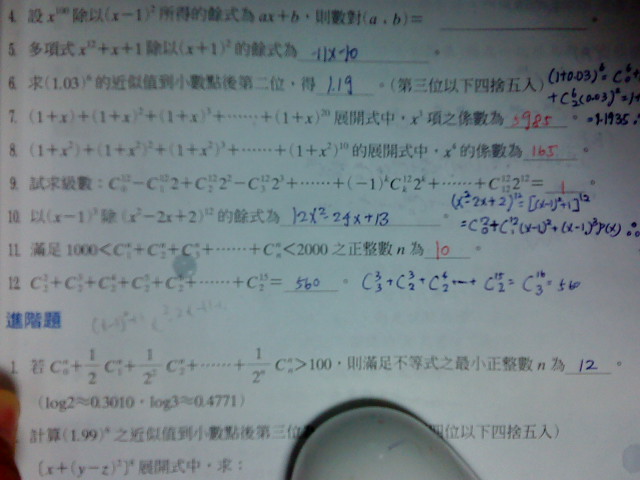 4. 設x¹⁰⁰除以(x−1)²所得的餘式為ax+b，則數對(a，b)＝ 。
5. 多項式x¹²+x+1除以(x+1)²的餘式為 -11x-10 。
6. 求(1.03)⁶的近似值到小數點後第二位，得 1.19 。(第三位以下四捨五入) (1+0.03)⁶=C₀⁶+
+C₂⁶(0.03)²=1+
7. (1+x)+(1+x)²+(1+x)³+……+(1+x)²⁰展開式中，x³項之係數為 5985 。 =1.1935
8. (1+x²)+(1+x²)²+(1+x²)³+……+(1+x²)¹⁰的展開式中，x⁴的係數為 165 。
9. 試求級數：C₀¹²−C₁¹²2+C₂¹²2²−C₃¹²2³+……+(−1)ᵏCₖ¹²2ᵏ+……+C₁₂¹²2¹²＝ 1 。
(x²-2x+2)¹²=[(x-1)²+1]¹²
10. 以(x−1)³除(x²−2x+2)¹²的餘式為 12x²-24x+13 。 =C₀¹²+C₁¹²(x-1)²+(x-1)³P(x)
11. 滿足1000<C₁ⁿ+C₂ⁿ+C₃ⁿ+……+Cₙⁿ<2000之正整數n為 10 。
12. C₂²+C₂³+C₂⁴+C₂⁵+C₂⁶+……+C₂¹⁵＝ 560 。 C₃³+C₂³+C₂⁴+…+C₂¹⁵=C₃¹⁶=560
進階題
1. 若C₀ⁿ+1/2 C₁ⁿ+1/2² C₂ⁿ+……+1/2ⁿ Cₙⁿ>100，則滿足不等式之最小正整數n為 12 。
(log2≈0.3010，log3≈0.4771)
計算(1.99)⁶之近似值到小數點後第三位 四位以下四捨五入)
[x+(y−z)²]⁸展開式中，求：